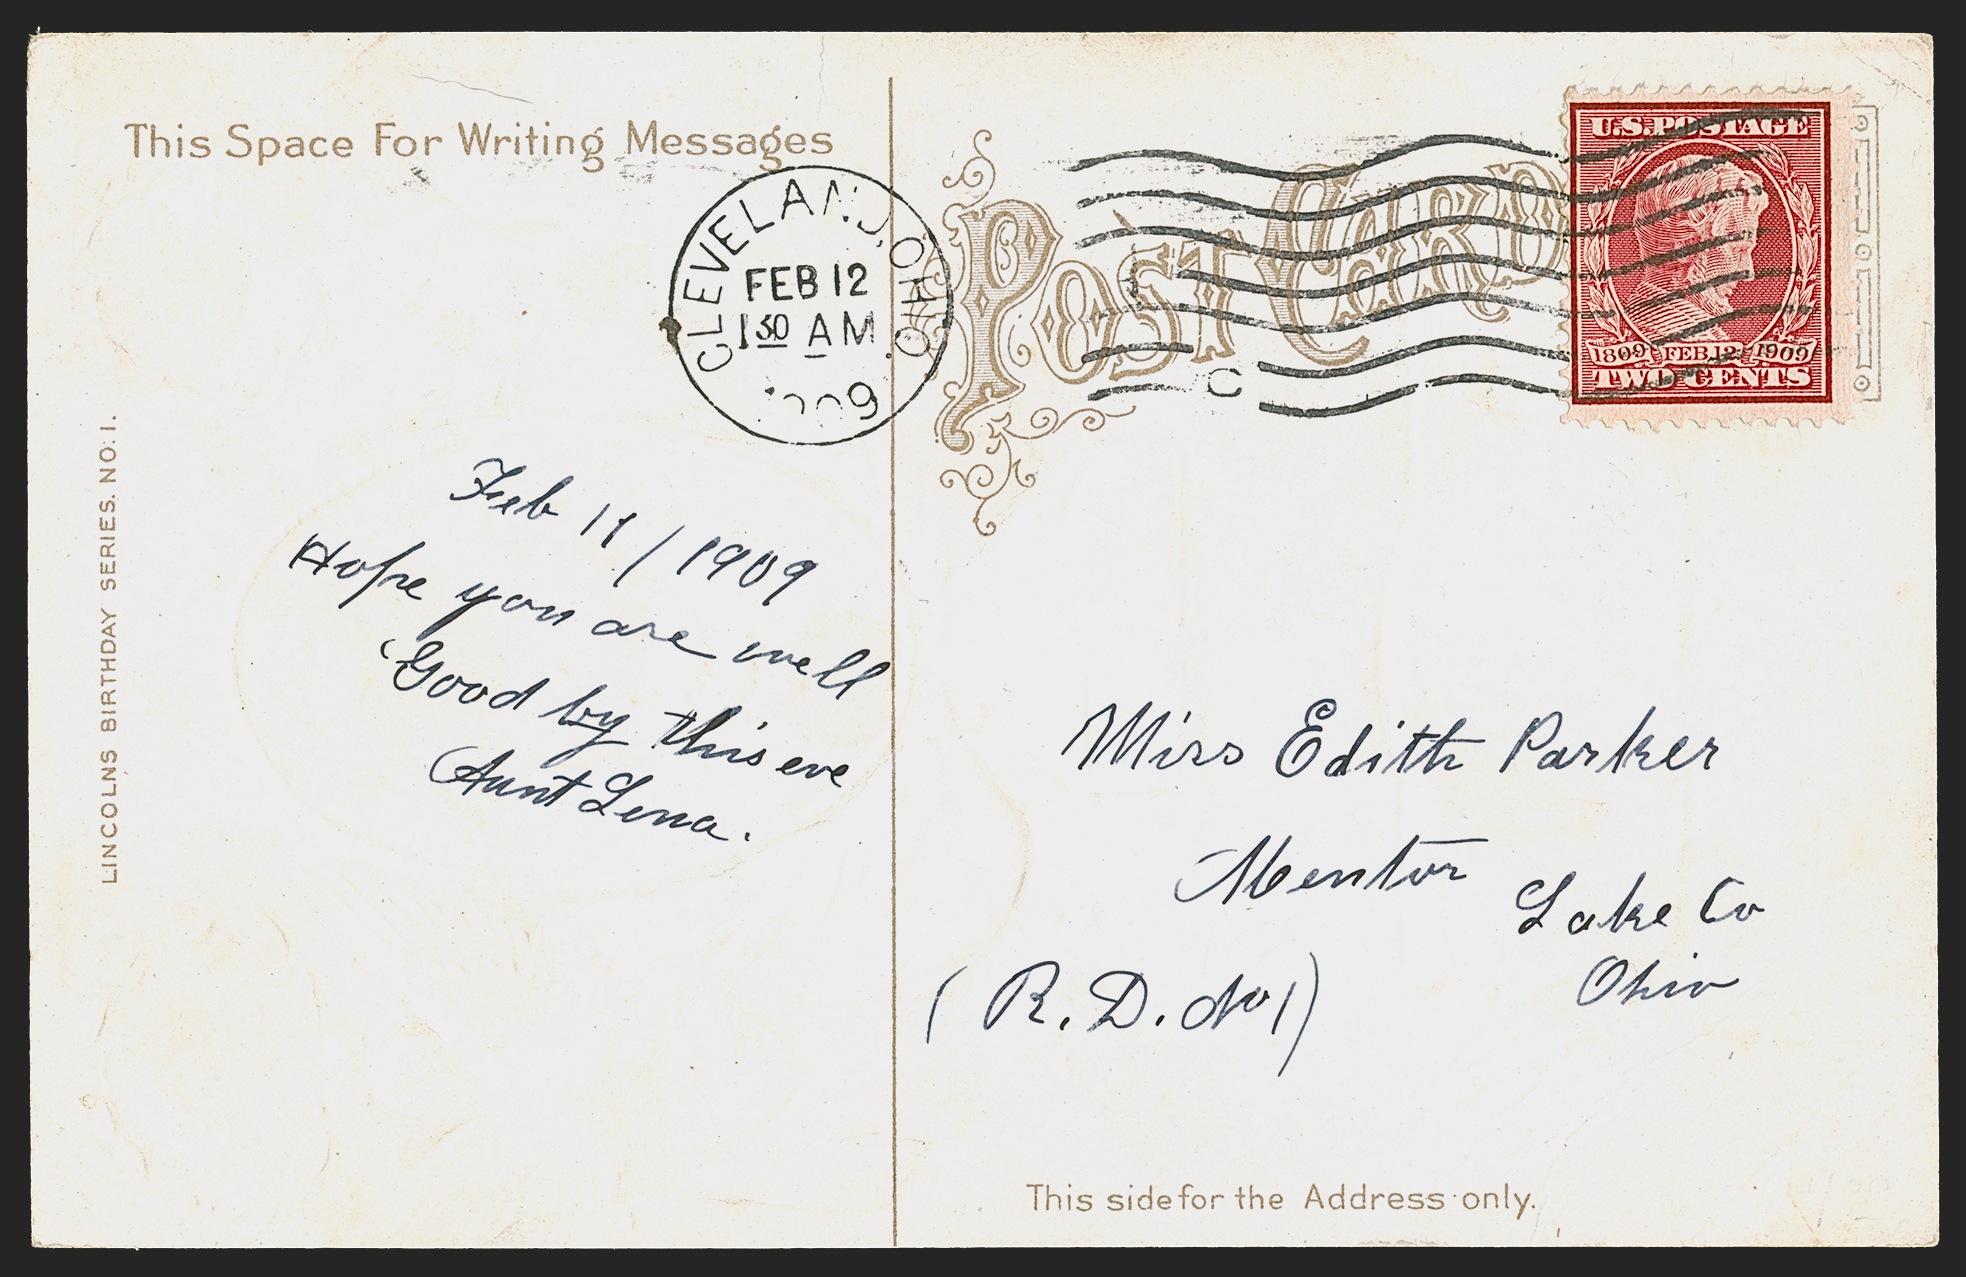 This Space For Writing Messages
LINCOLNS BIRTHDAY SERIES. NO. 1.
CLEVELAND, OHIO.
FEB 12
1 30 AM
1909
Feb 11 / 1909
Hope you are well
Good by this eve
Aunt Lena.
POST CARD
C
U.S. POSTAGE
1809 FEB. 12 1909
TWO CENTS
Miss Edith Parker
Mentor
Lake Co
Ohio
(R. D. No 1)
This side for the Address only.